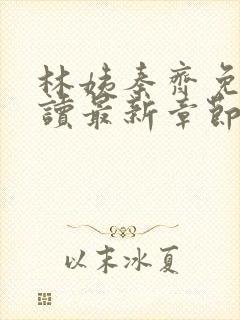 林姨秦齊免
讀最新章節
以末冰夏